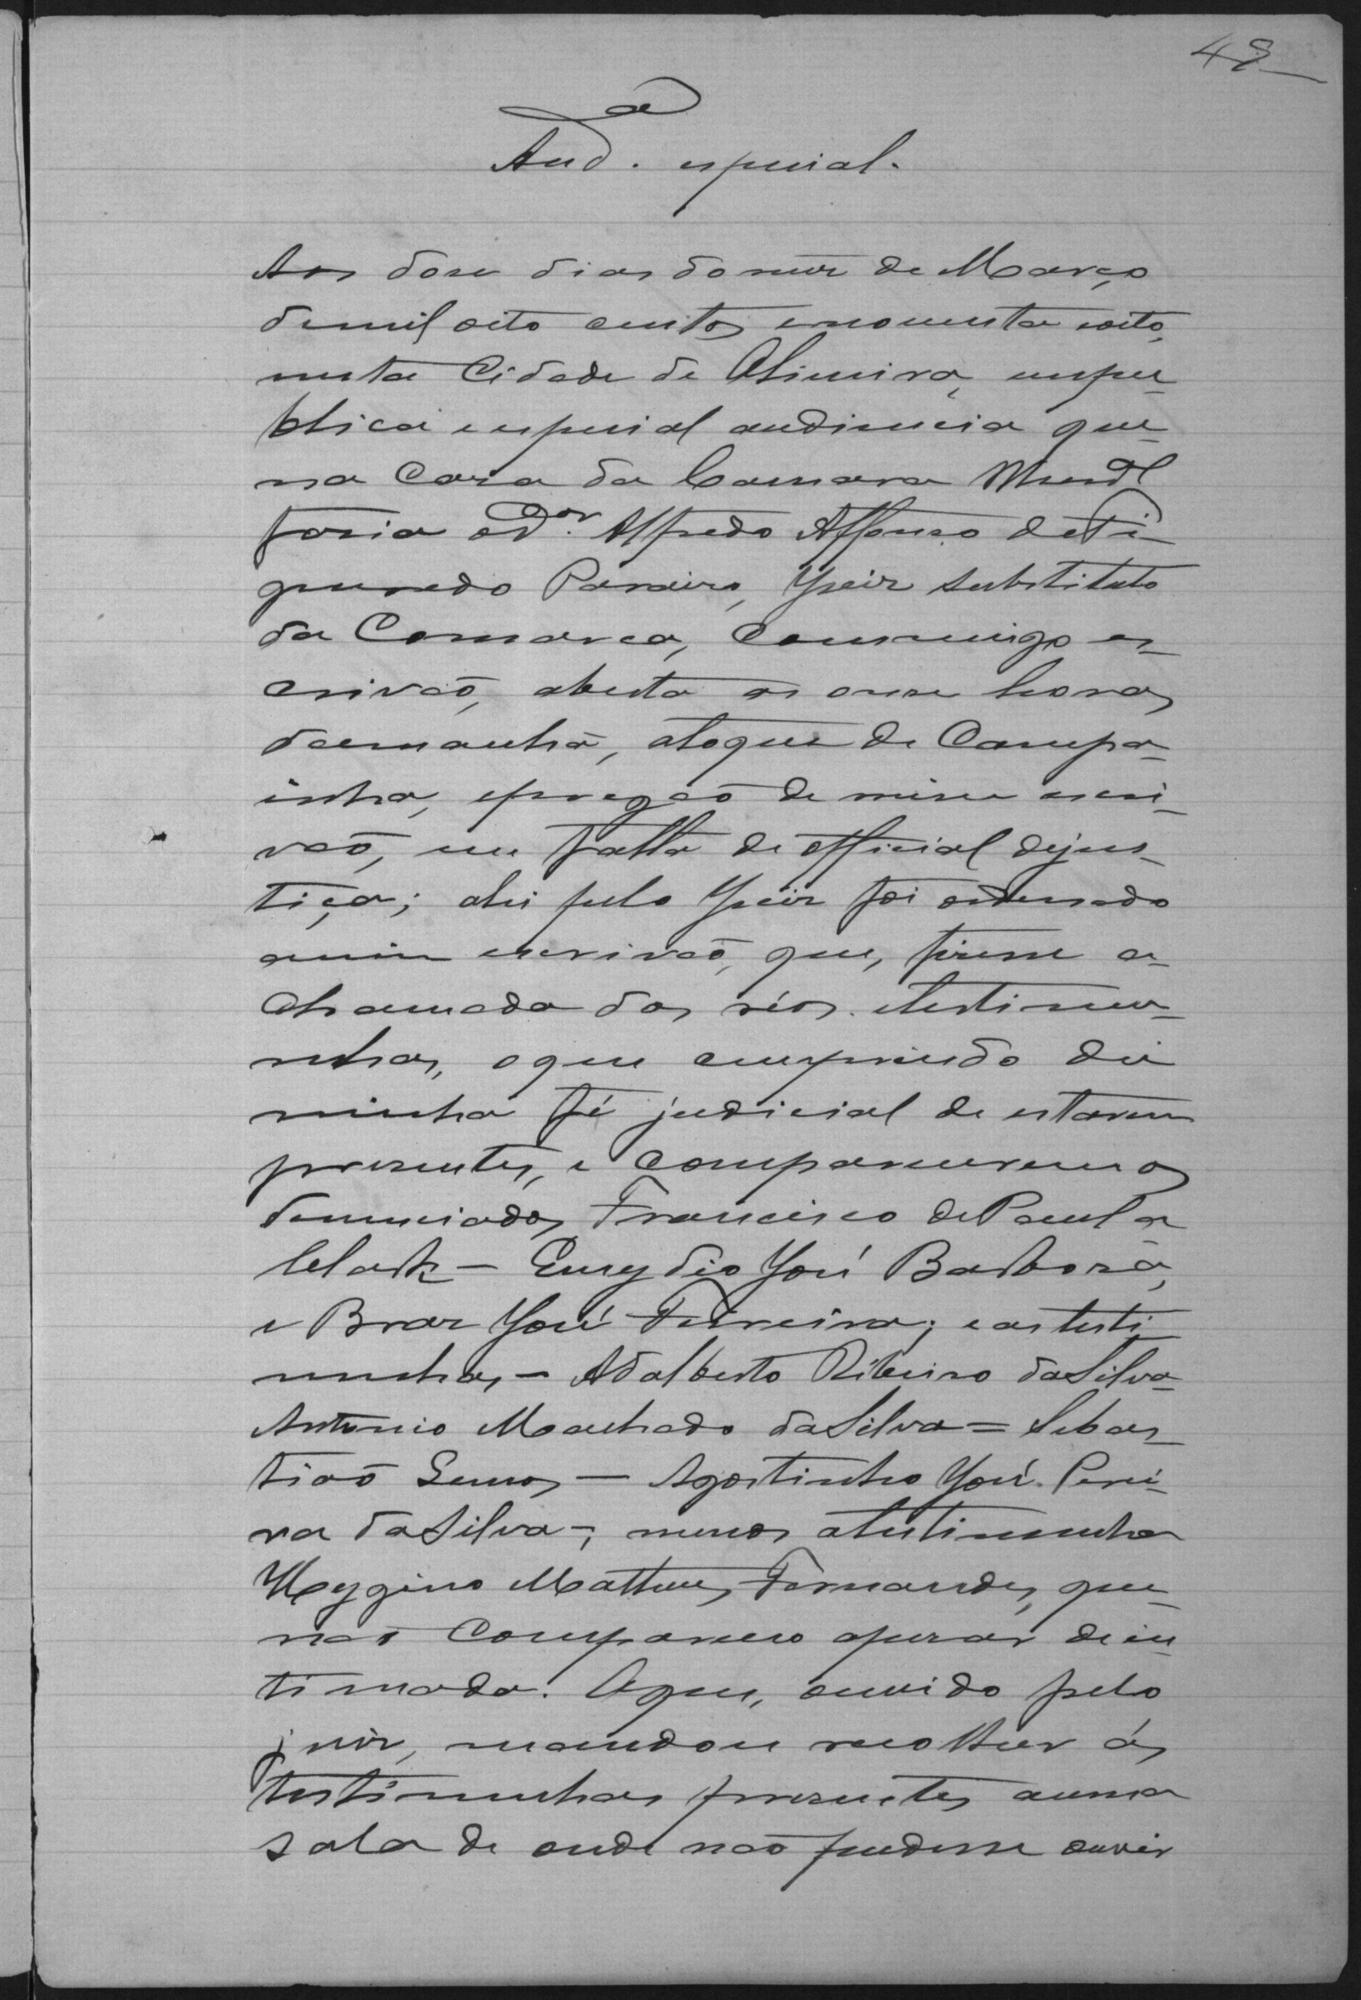 48
Aud.ª especial.
Aos dose dias do mez de Março
de mil oito centos e noventa e oito,
nesta Cidade de Limeira, em pu-
blica e especial audiencia que
na Casa da Camara Mun.dl
fasia o D.or Alfredo Affonso de Fi-
gueredo Juiz substituto
da Comarca, Commigo es-
crivão, aberta as onse horas
da manhã, a toque de Campa-
inha, e pregão de mim escri-
vão, em falta de official de jus-
tiça; ahi pelo Juiz foi ordenado
a mim escrivão, que, fisesse a
chamada dos réos e testimu-
nhas, o que cumprindo dei
minha fé judicial de estarem
presentes, e compareceram os
denunciados Francisco de Paula
Clark — Euzydio José Barbosa,
e Braz José Ferreira; e as testi
munhas, — Adalberto Ribeiro da Silva
Antonio Machado da Silva = Sebas-
tião Lemos — Agostinho José Perei-
ra da Silva —; menos a testimunha
Hygino Matheus Fernandes, que
não compareceu apesar de in
timado. O que, ouvido pelo
juiz, mandou recolher ás
testimunhas presentes a uma
sala de onde não pudesse ouvir